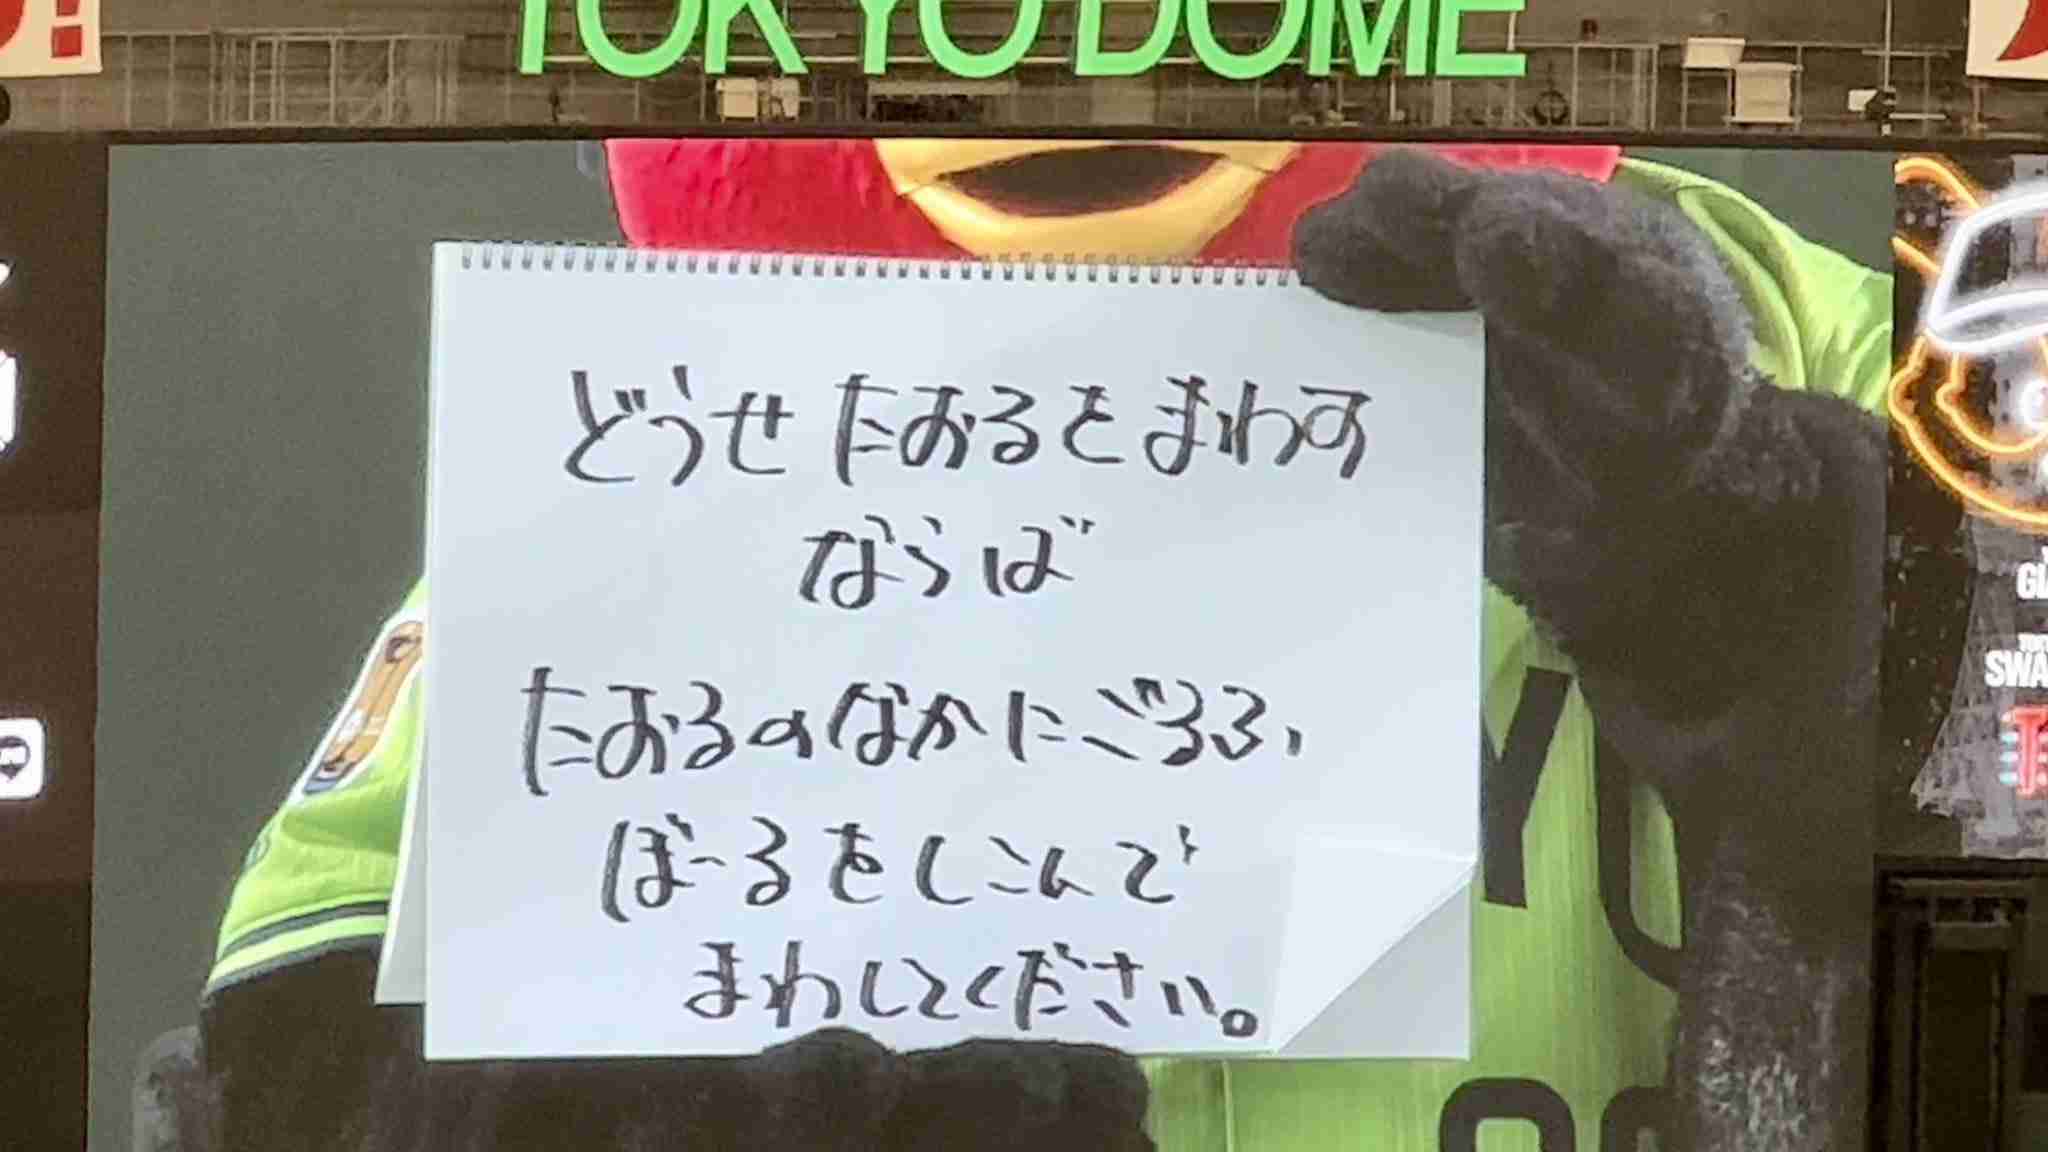 TOKYO DOME
どうせたおるをまわす
ならば
たおるのなかにごるふ
ぼーるをしこんで
まわしてください。